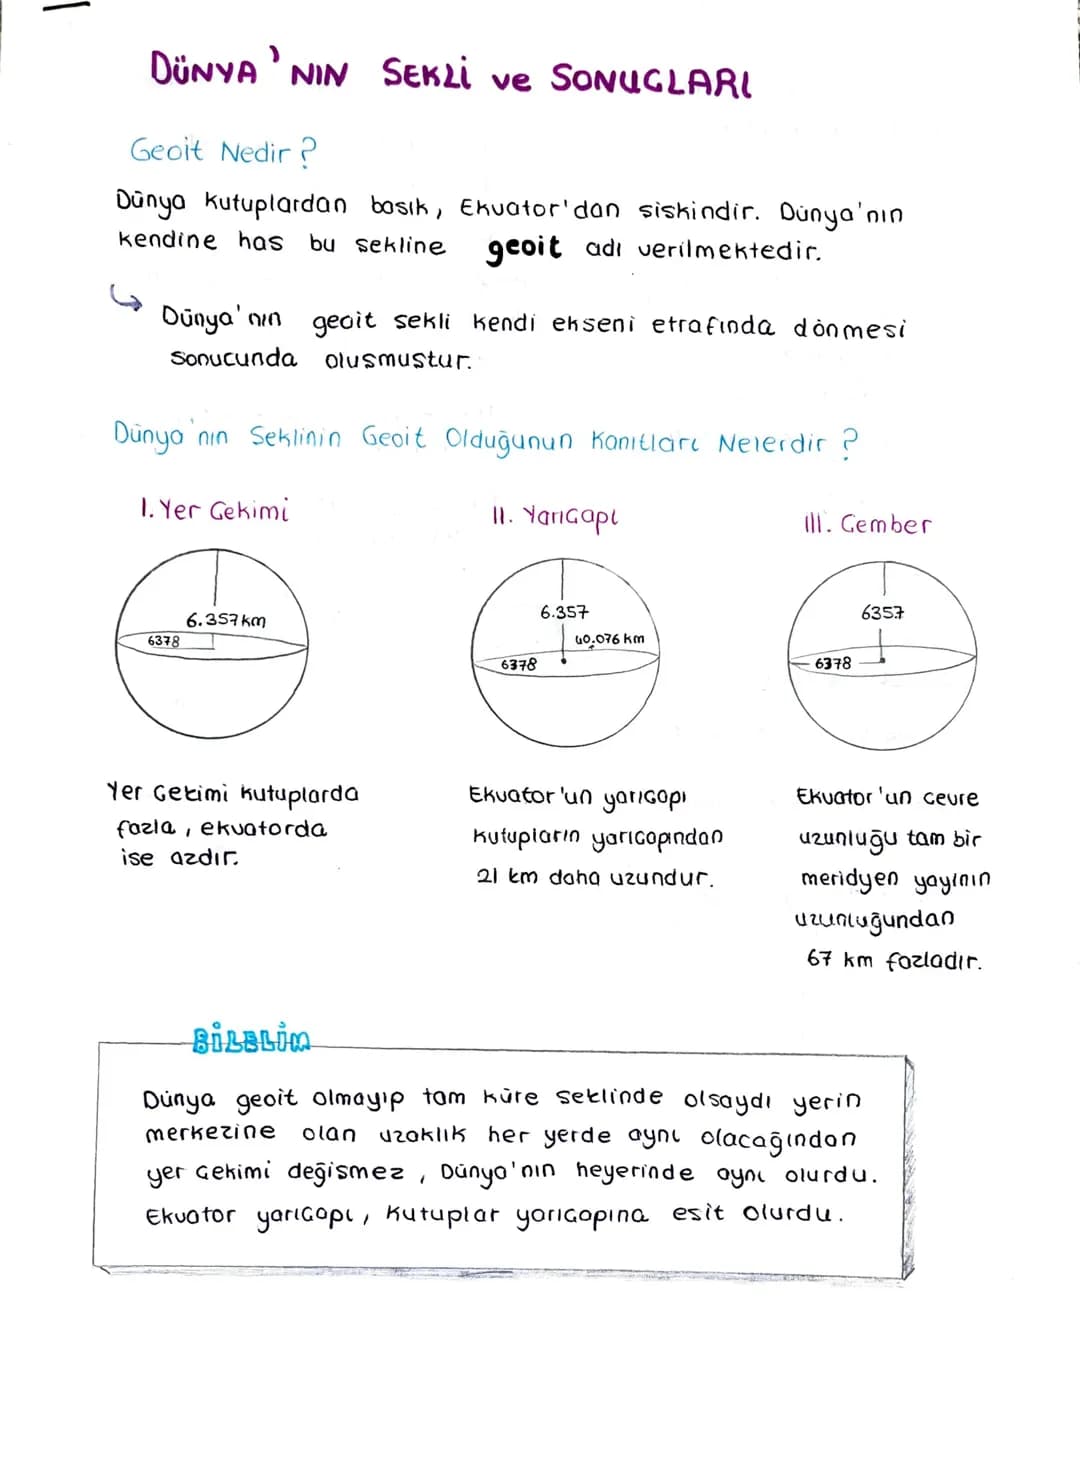 DÜNYA'NIN SEKLİ ve SONUCLARI
Geoit Nedir?
Dünya kutuplardan basık, Ekvator'dan siskindir. Dünya'nın
kendine has bu sekline geoit adı verilmektedir.
Dünya'nın geoit sekli kendi ekseni etrafında dönmesi
sonucunda oluşmuştur.
Dünya'nın Seklinin Geoit Olduğunun Kanıtları Nelerdir?
I. Yer Cekimi
II. Yarıcapı
III. Cember
6.357 km
6378
6.357
40.076 km
6378
6357
6378
Yer Cekimi kutuplarda
fazla, ekvatorda
ise azdır.
Ekvator'un yarıcapı
kutupların yarıcapından
21 km daha uzundur.
Ekvator'un cevre
uzunluğu tam bir
meridyen yayının
uzunluğundan
67 km fazladır.
BİLELİM
Dünya geoit olmayıp tam küre seklinde olsaydı yerin
merkezine olan uzaklık her yerde aynı olacağından
yer cekimi değismez, Dünya'nın heyerinde aynı olurdu.
Ekvator yarıcapı, kutuplar yarıcapına esit olurdu.